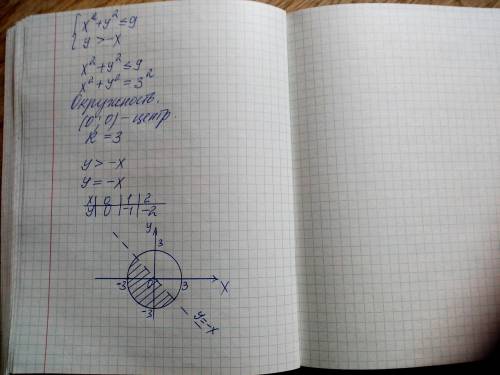 x²+y²≤9
y>-x
x²+y²≤9
x²+y²=3²
Окружность.
(0; 0) - центр.
R=3
y>-x
y=-x
x 0 1 2
y 0 -1 -2
y
3
-3 0 3 x
-3
y=-x